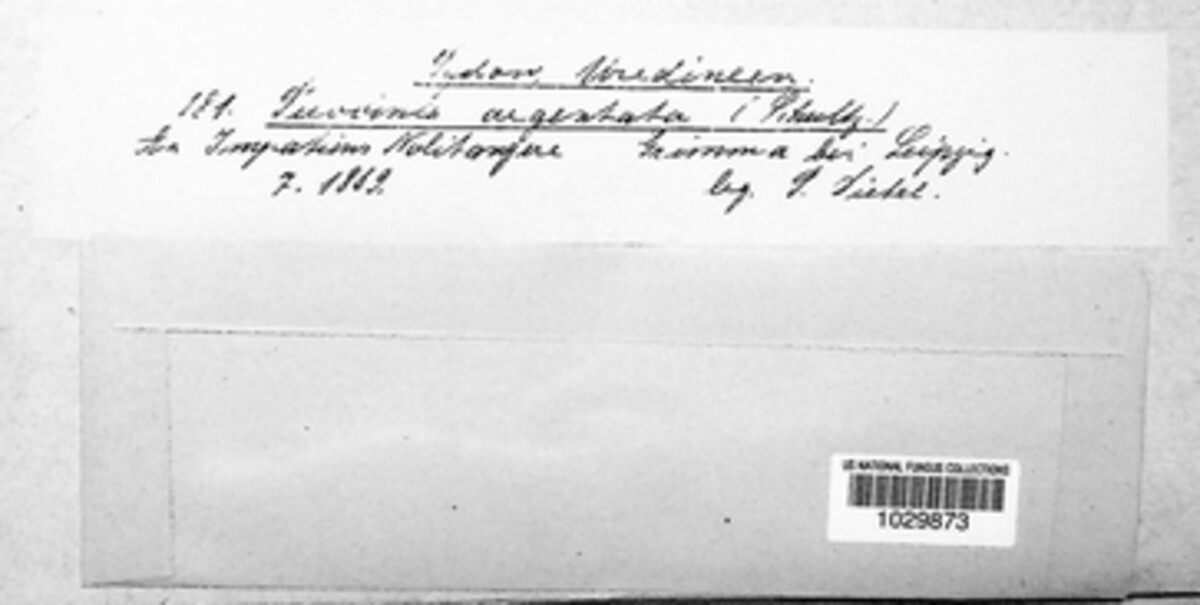 Sydow, Uredineen.
181. Puccinia argentata (Schultz.)
An Impatiens Nolitangere Grimma bei Leipzig.
7. 1889. leg. P. Dietel.
US NATIONAL FUNGUS COLLECTIONS
1029873